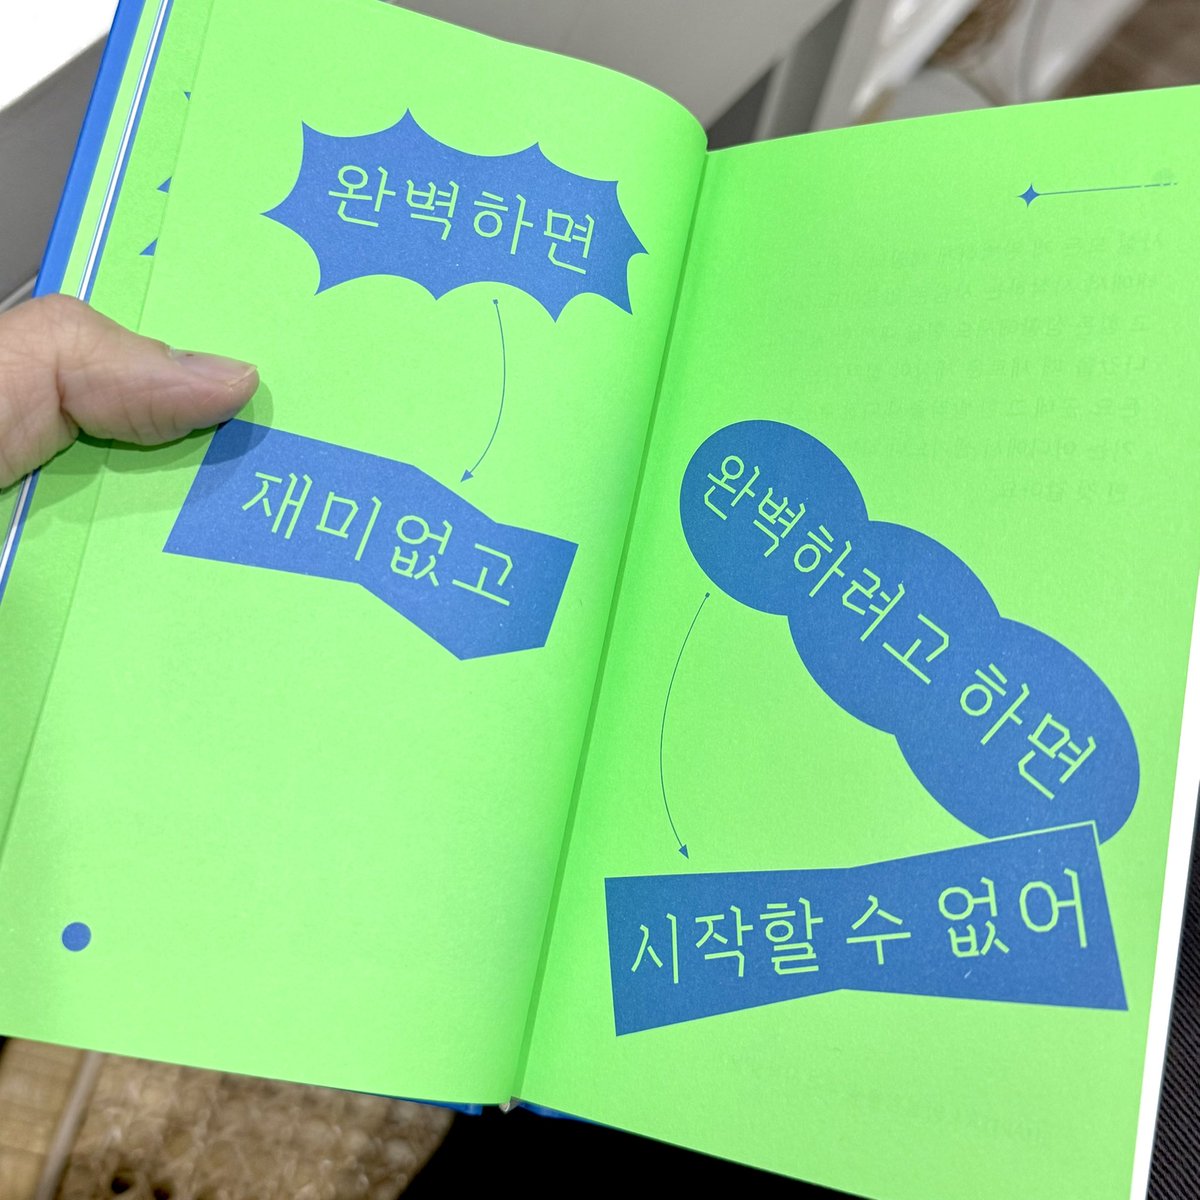 완벽하면
재미없고
완벽하려고 하면
시작할 수 없어